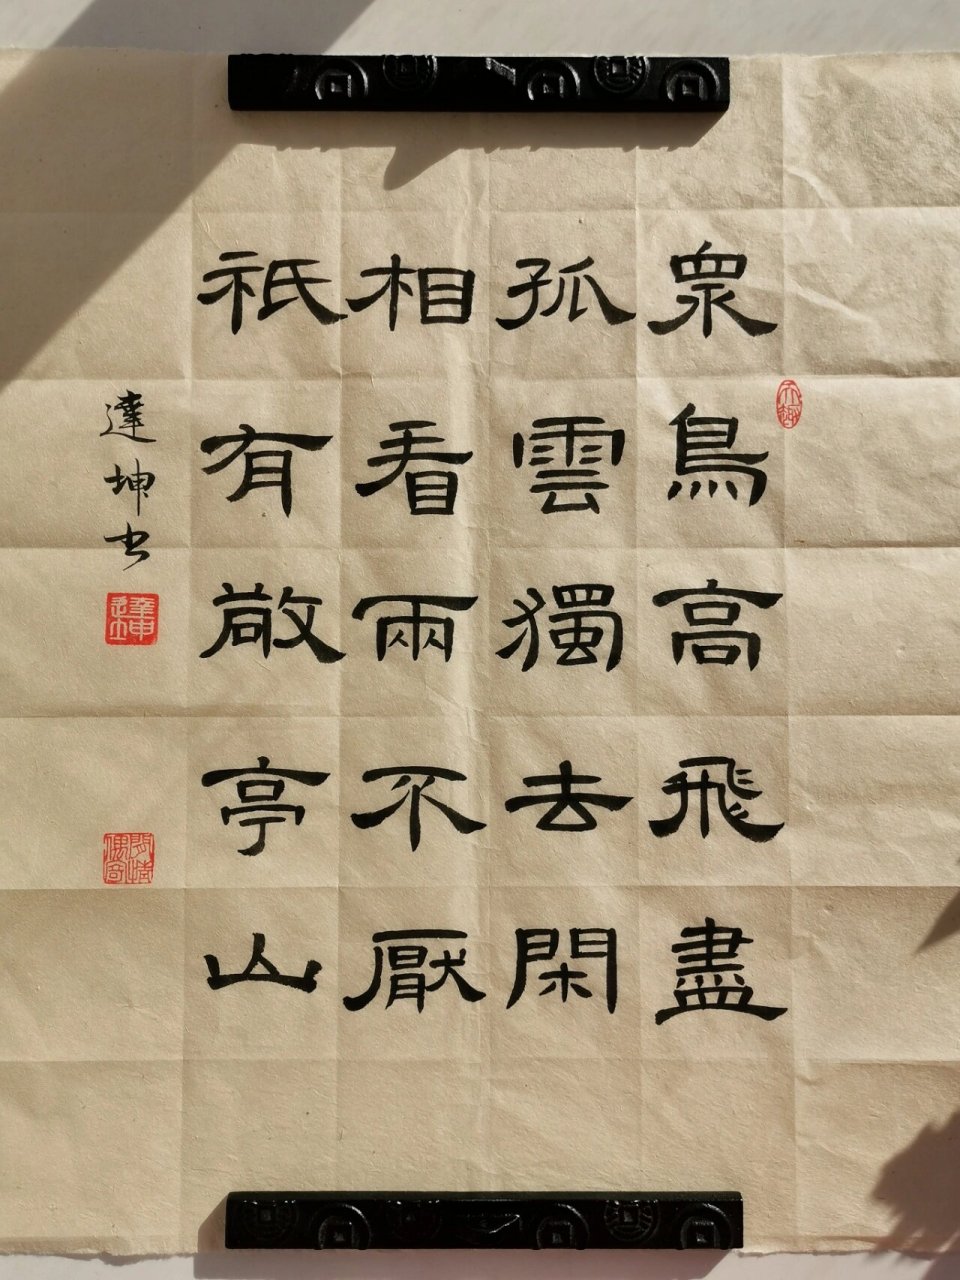 眾鳥高飛盡
孤雲獨去閑
相看兩不厭
祇有敬亭山
達坤书